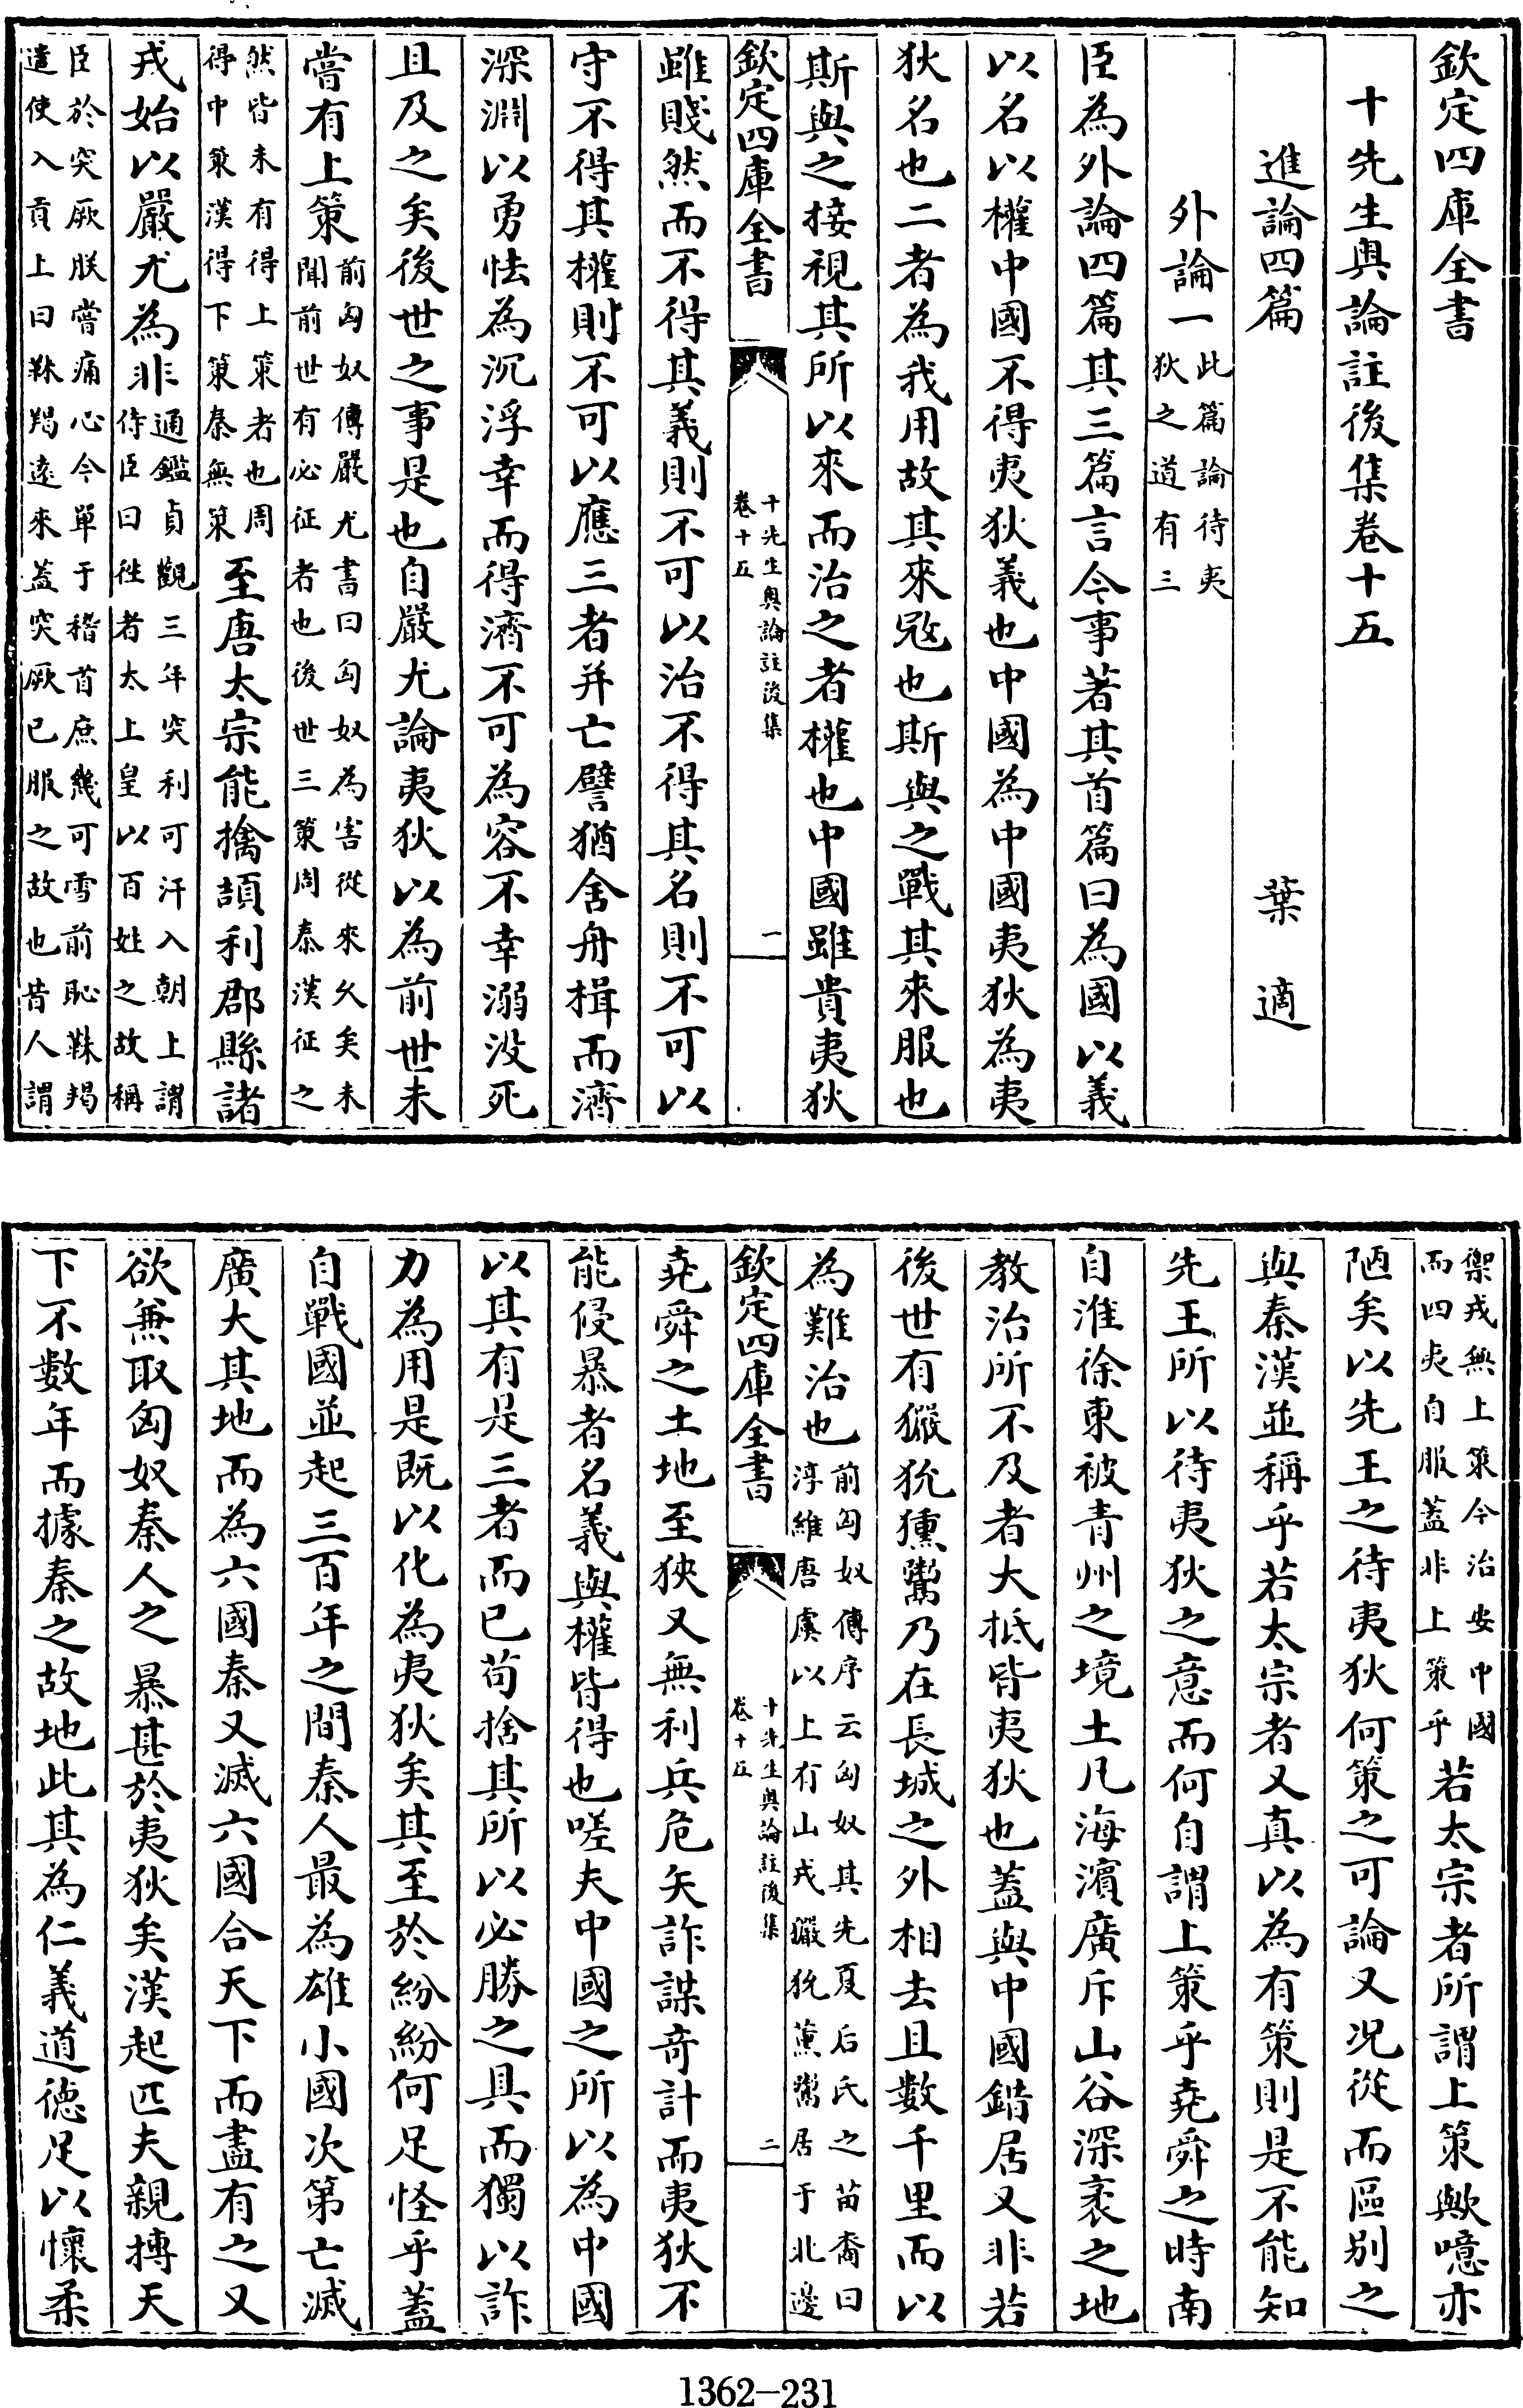 欽定四庫全書
十先生奧論註後集卷十五
進論四篇　葉適
外論一此篇論待夷狄之道有三
臣為外論四篇其三篇言今事著其首篇曰為國以義
以名以權中國不得夷狄義也中國為中國夷狄為夷
狄名也二者為我用故其來冦也斯與之戰其來服也
斯與之接視其所以來而治之者權也中國雖貴夷狄
欽定四庫全書
十先生奧論註後集
卷十五
一
雖賤然而不得其義則不可以治不得其名則不可以
守不得其權則不可以應三者并亡譬猶舍舟楫而濟
深淵以勇怯為沉浮幸而得濟不可為容不幸溺没死
且及之矣後世之事是也自嚴尤論夷狄以為前世未
嘗有上策前匈奴傳嚴尤書曰匈奴為害從來久矣未聞前世有必征者也後世三策周秦漢征之
然皆未有得上策者也周得中策漢得下策秦無策至唐太宗能擒頡利郡縣諸
戎始以嚴尤為非通鑑貞觀三年突利可汗入朝上謂侍臣曰徃者太上皇以百姓之故稱
臣於突厥朕嘗痛心今單于稽首庶幾可雪前恥靺羯遣使入貢上曰靺羯逺來蓋突厥已服之故也昔人謂
禦戎無上策今治安中國而四夷自服蓋非上策乎若太宗者所謂上策歟噫亦
陋矣以先王之待夷狄何策之可論又况從而區别之
與秦漢並稱乎若太宗者又真以為有策則是不能知
先王所以待夷狄之意而何自謂上策乎堯舜之時南
自淮徐東被青州之境土凡海濱廣斥山谷深袤之地
教治所不及者大抵皆夷狄也蓋與中國錯居又非若
後世有玁狁獯鬻乃在長城之外相去且數千里而以
為難治也前匈奴傳序云匈奴其先夏后氏之苗裔曰淳維唐虞以上有山戎玁狁薰鬻居于北邊
欽定四庫全書
十先生奧論註後集
卷十五
二
堯舜之土地至狹又無利兵危矢詐謀竒計而夷狄不
能侵暴者名義與權皆得也嗟夫中國之所以為中國
以其有是三者而已苟捨其所以必勝之具而獨以詐
力為用是既以化為夷狄矣其至於紛紛何足怪乎蓋
自戰國並起三百年之間秦人最為雄小國次第亡滅
廣大其地而為六國秦又滅六國合天下而盡有之又
欲兼取匈奴秦人之暴甚於夷狄矣漢起匹夫親摶天
下不數年而據秦之故地此其為仁義道德足以懷柔
1362-231